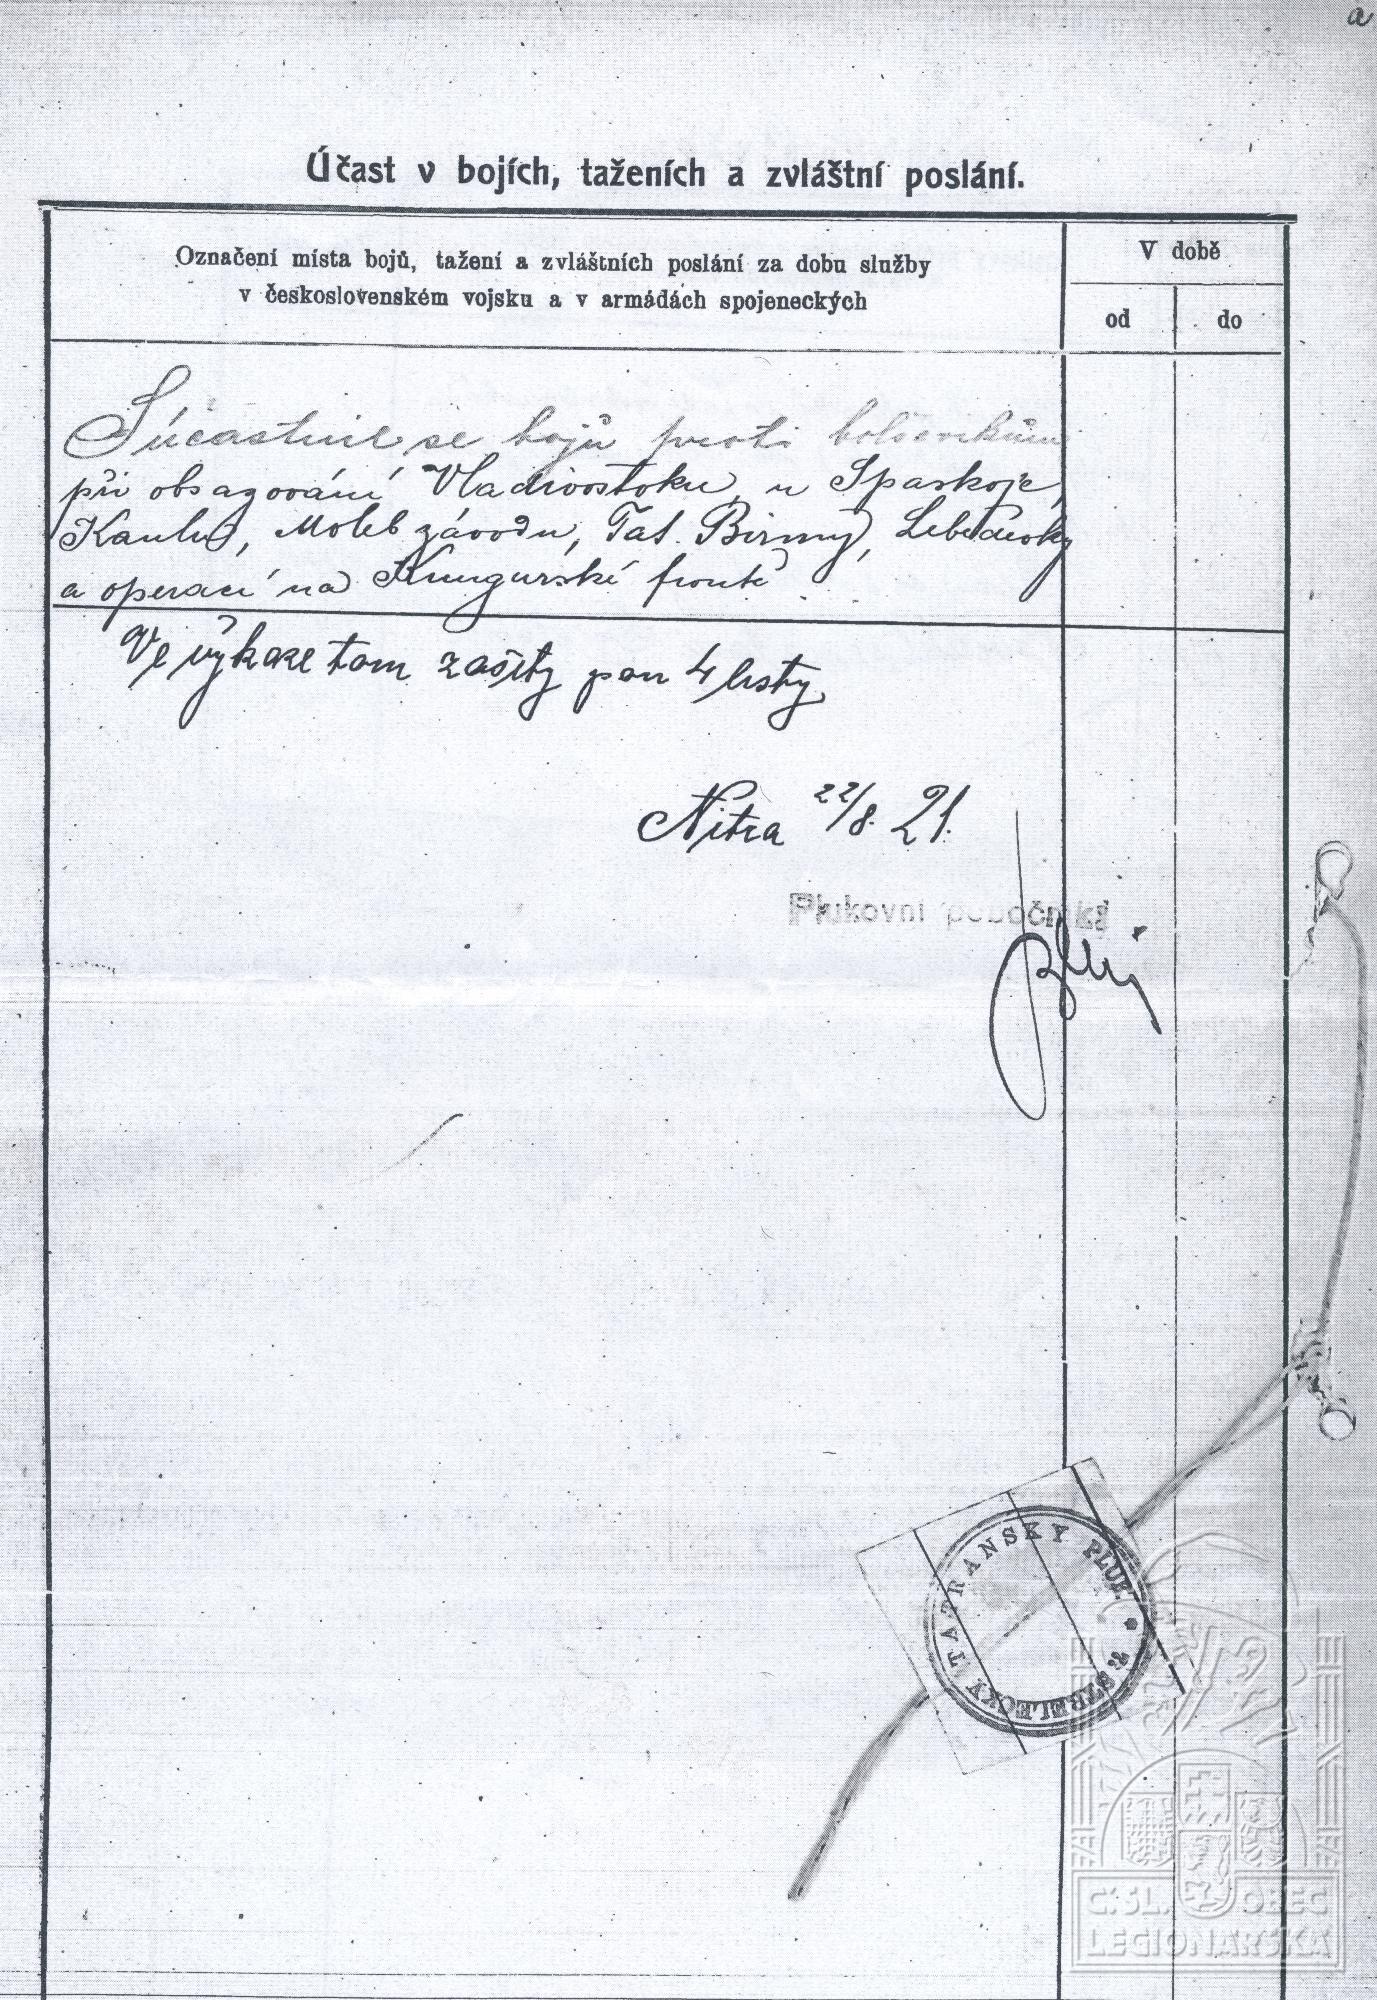 a
Účast v bojích, taženích a zvláštní poslání.
Označení místa bojů, tažení a zvláštních poslání za dobu služby
v československém vojsku a v armádách spojeneckých
V době
od
do
Súčastnil se bojů proti bolševikům
při obsazování Vladivostoku, u Spaskoje,
Kaulu, Moleb závodu, Tat. Birmy, Lebedevky
a operací na Kungurské frontě
Ve výkaze tom zašity jsou 4 listy
Nitra 22/8. 21.
Plukovní pobočník:
STRELECKÝ TATRANSKÝ PLUK
ČSL. OBEC
LEGIONÁŘSKÁ